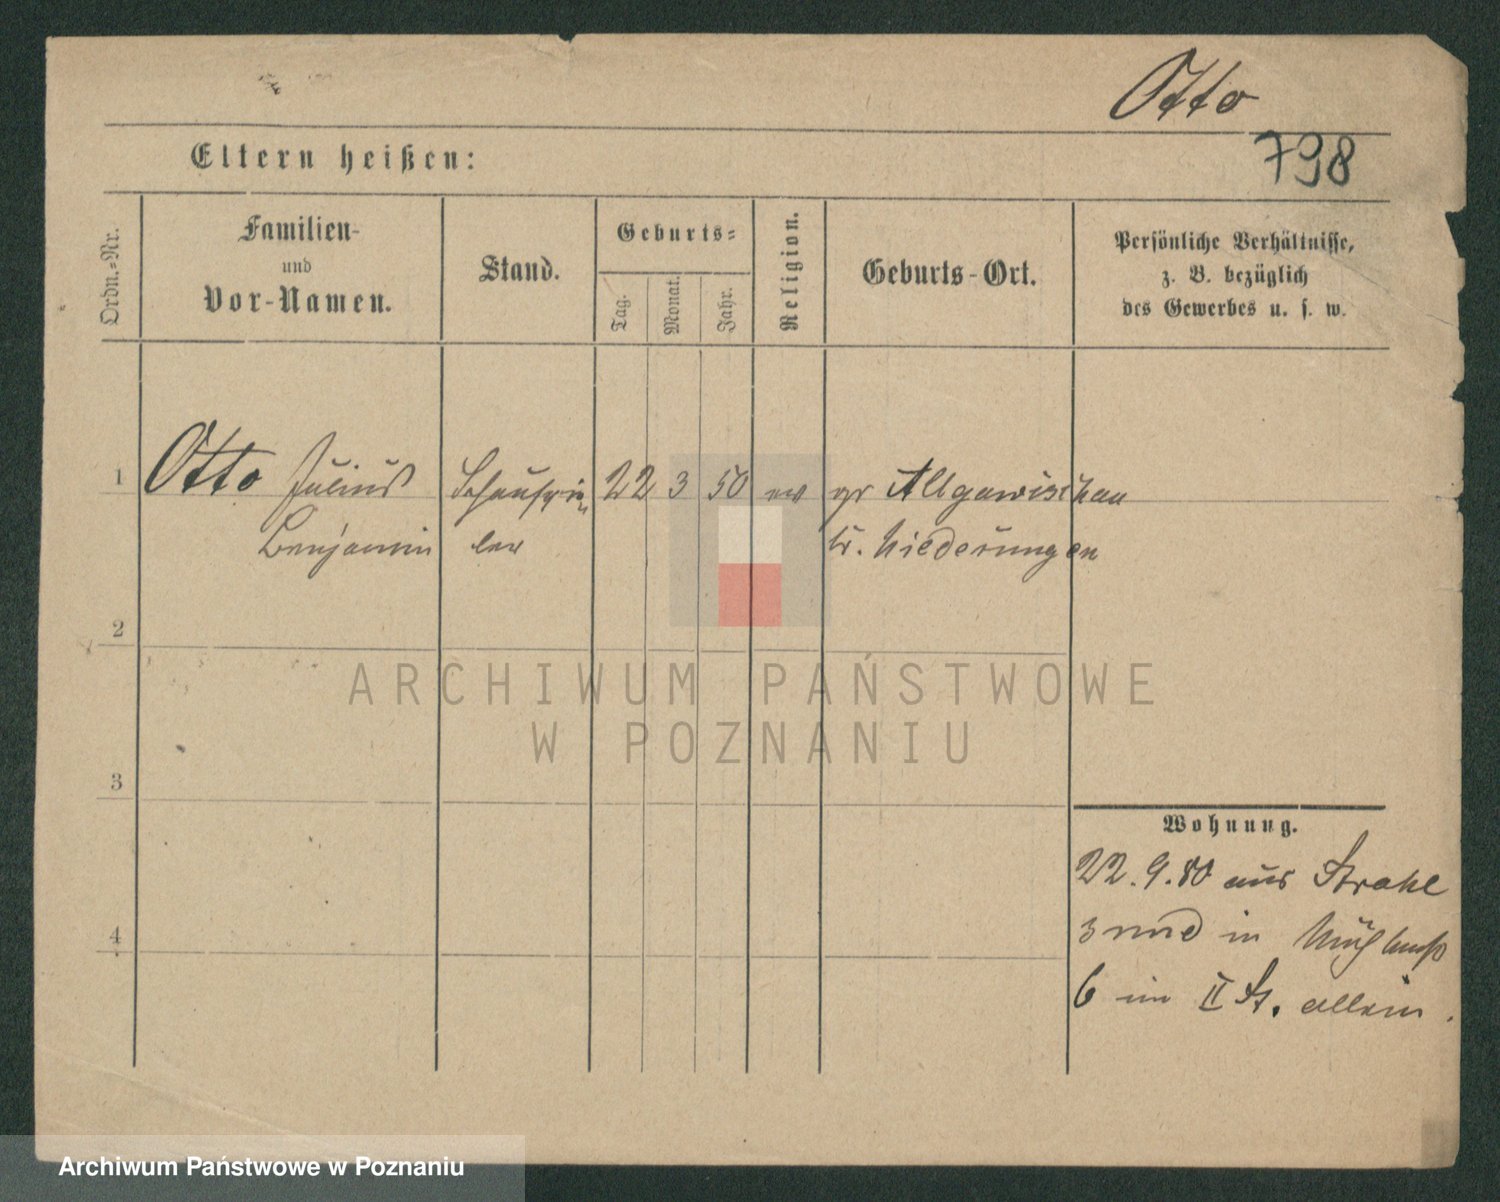 Otto
798
Eltern heißen:
Ordn.-Nr.
Familien-
und
Vor-Namen.
Stand.
Geburts-
Tag.
Monat.
Jahr.
Religion.
Geburts-Ort.
Persönliche Verhältnisse,
z. B. bezüglich
des Gewerbes u. s. w.
1 Otto Julius Schauspie 22 3 50 ev gr Allgawischau
Benjamin ler Kr. Niederungen
2
3
4
Wohnung.
22.9.80 aus Stral
sund in
6 im II St. allein.
ARCHIWUM PAŃSTWOWE
W POZNANIU
Archiwum Państwowe w Poznaniu